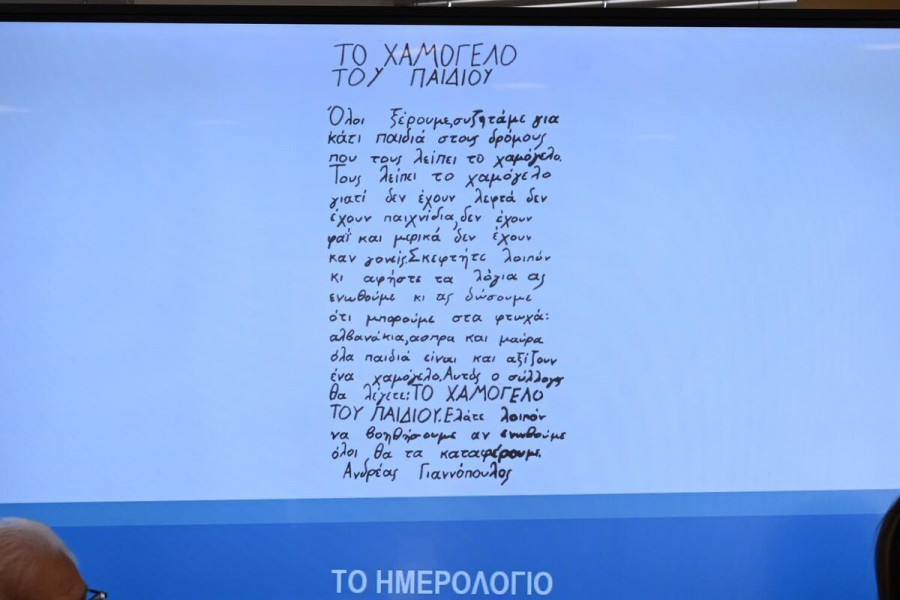 ΤΟ ΧΑΜΟΓΕΛΟ
ΤΟΥ ΠΑΙΔΙΟΥ
Όλοι ξέρουμε,συζητάμε για
κάτι παιδιά στους δρόμους
που τους λείπει το χαμόγελο.
Τους λείπει το χαμόγελο
γιατί δεν έχουν λεφτά δεν
έχουν παιχνίδια,δεν έχουν
φαΐ και μερικά δεν έχουν
καν γονείς.Σκεφτήτε λοιπόν
κι αφήστε τα λόγια ας
ενωθούμε κι ας δώσουμε
ότι μπορούμε στα φτωχά:
αλβανάκια,ασπρα και μαύρα
όλα παιδιά είναι και αξίζουν
ένα χαμόγελο.Αυτός ο σύλλογος
θα λέγετε:ΤΟ ΧΑΜΟΓΕΛΟ
ΤΟΥ ΠΑΙΔΙΟΥ.Ελάτε λοιπόν
να βοηθήσουμε αν ενωθούμε
όλοι θα τα καταφέρουμε.
Ανδρέας Γιαννόπουλος
ΤΟ ΗΜΕΡΟΛΟΓΙΟ